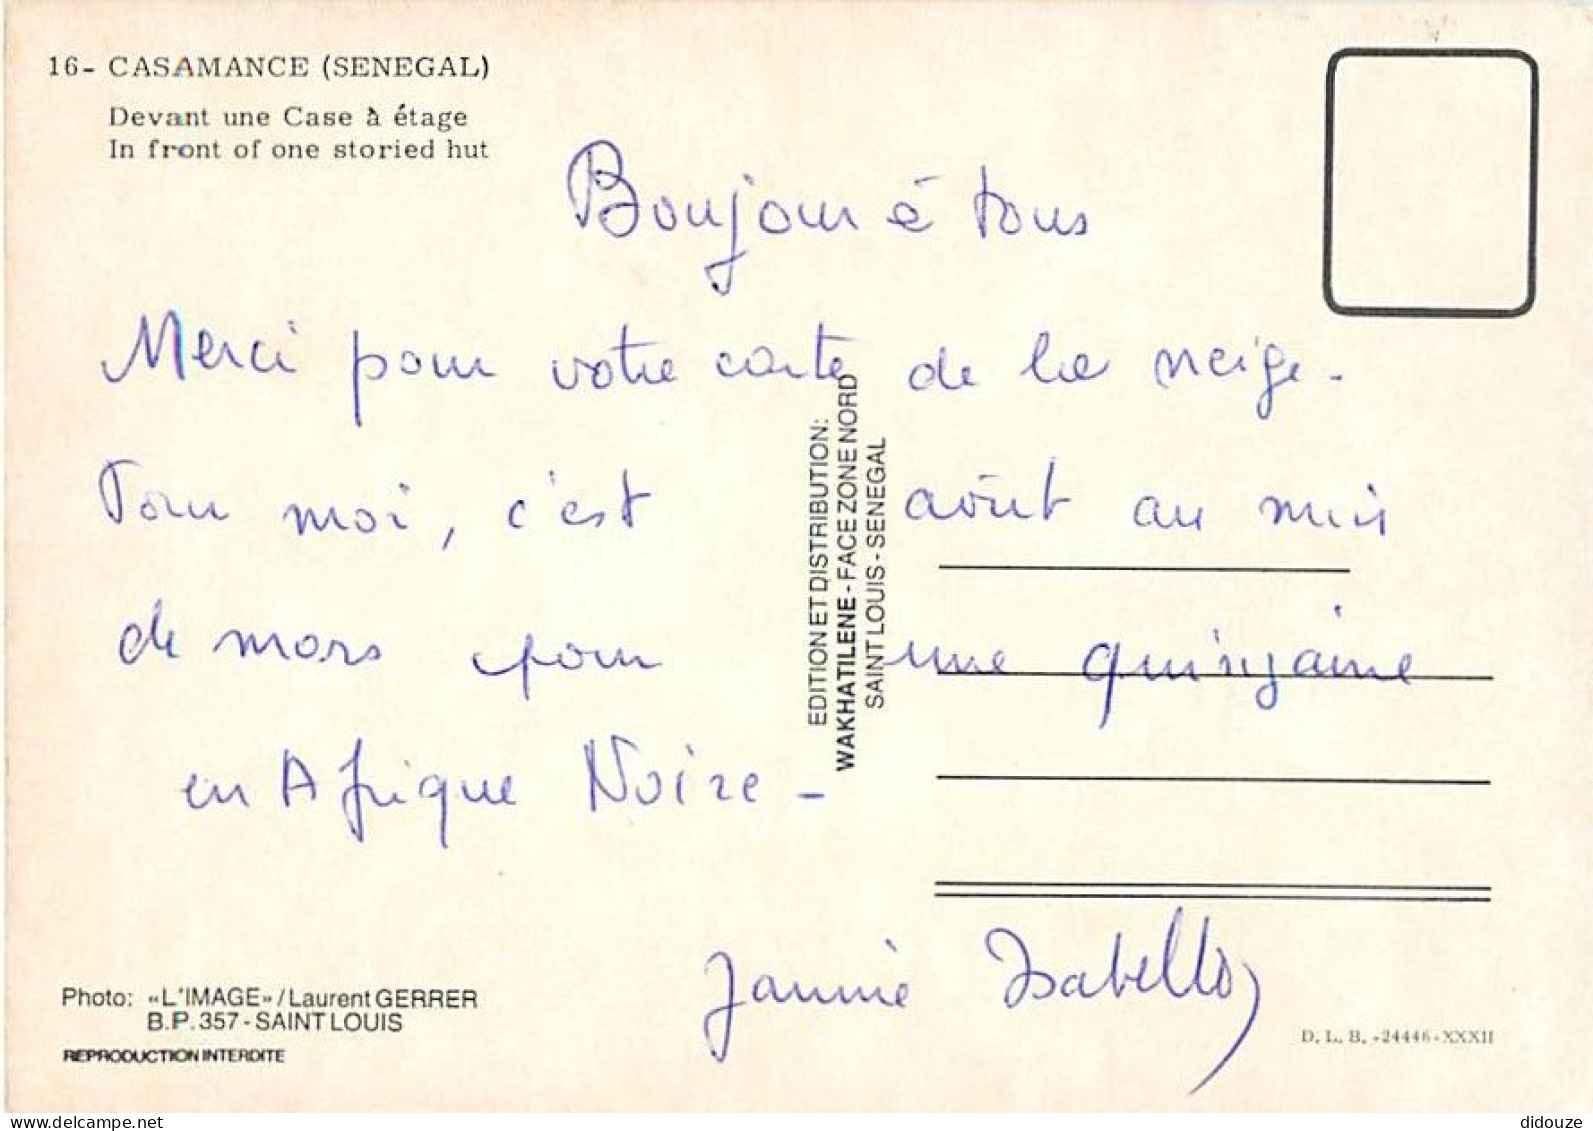 16- CASAMANCE (SENEGAL)
Devant une Case à étage
In front of one storied hut
Bonjour à tous
Merci pour votre carte de la neige.
Pour moi, c'est août au mois
de mars pour une quinzaine
en Afrique Noire -
EDITION ET DISTRIBUTION:
WAKHATILENE - FACE ZONE NORD
SAINT LOUIS - SENEGAL
Jannie Isabelle
Photo: «L'IMAGE» / Laurent GERRER
B.P. 357 - SAINT LOUIS
REPRODUCTION INTERDITE
D. L. B. -24446-XXXII
delcampe.net
didouze